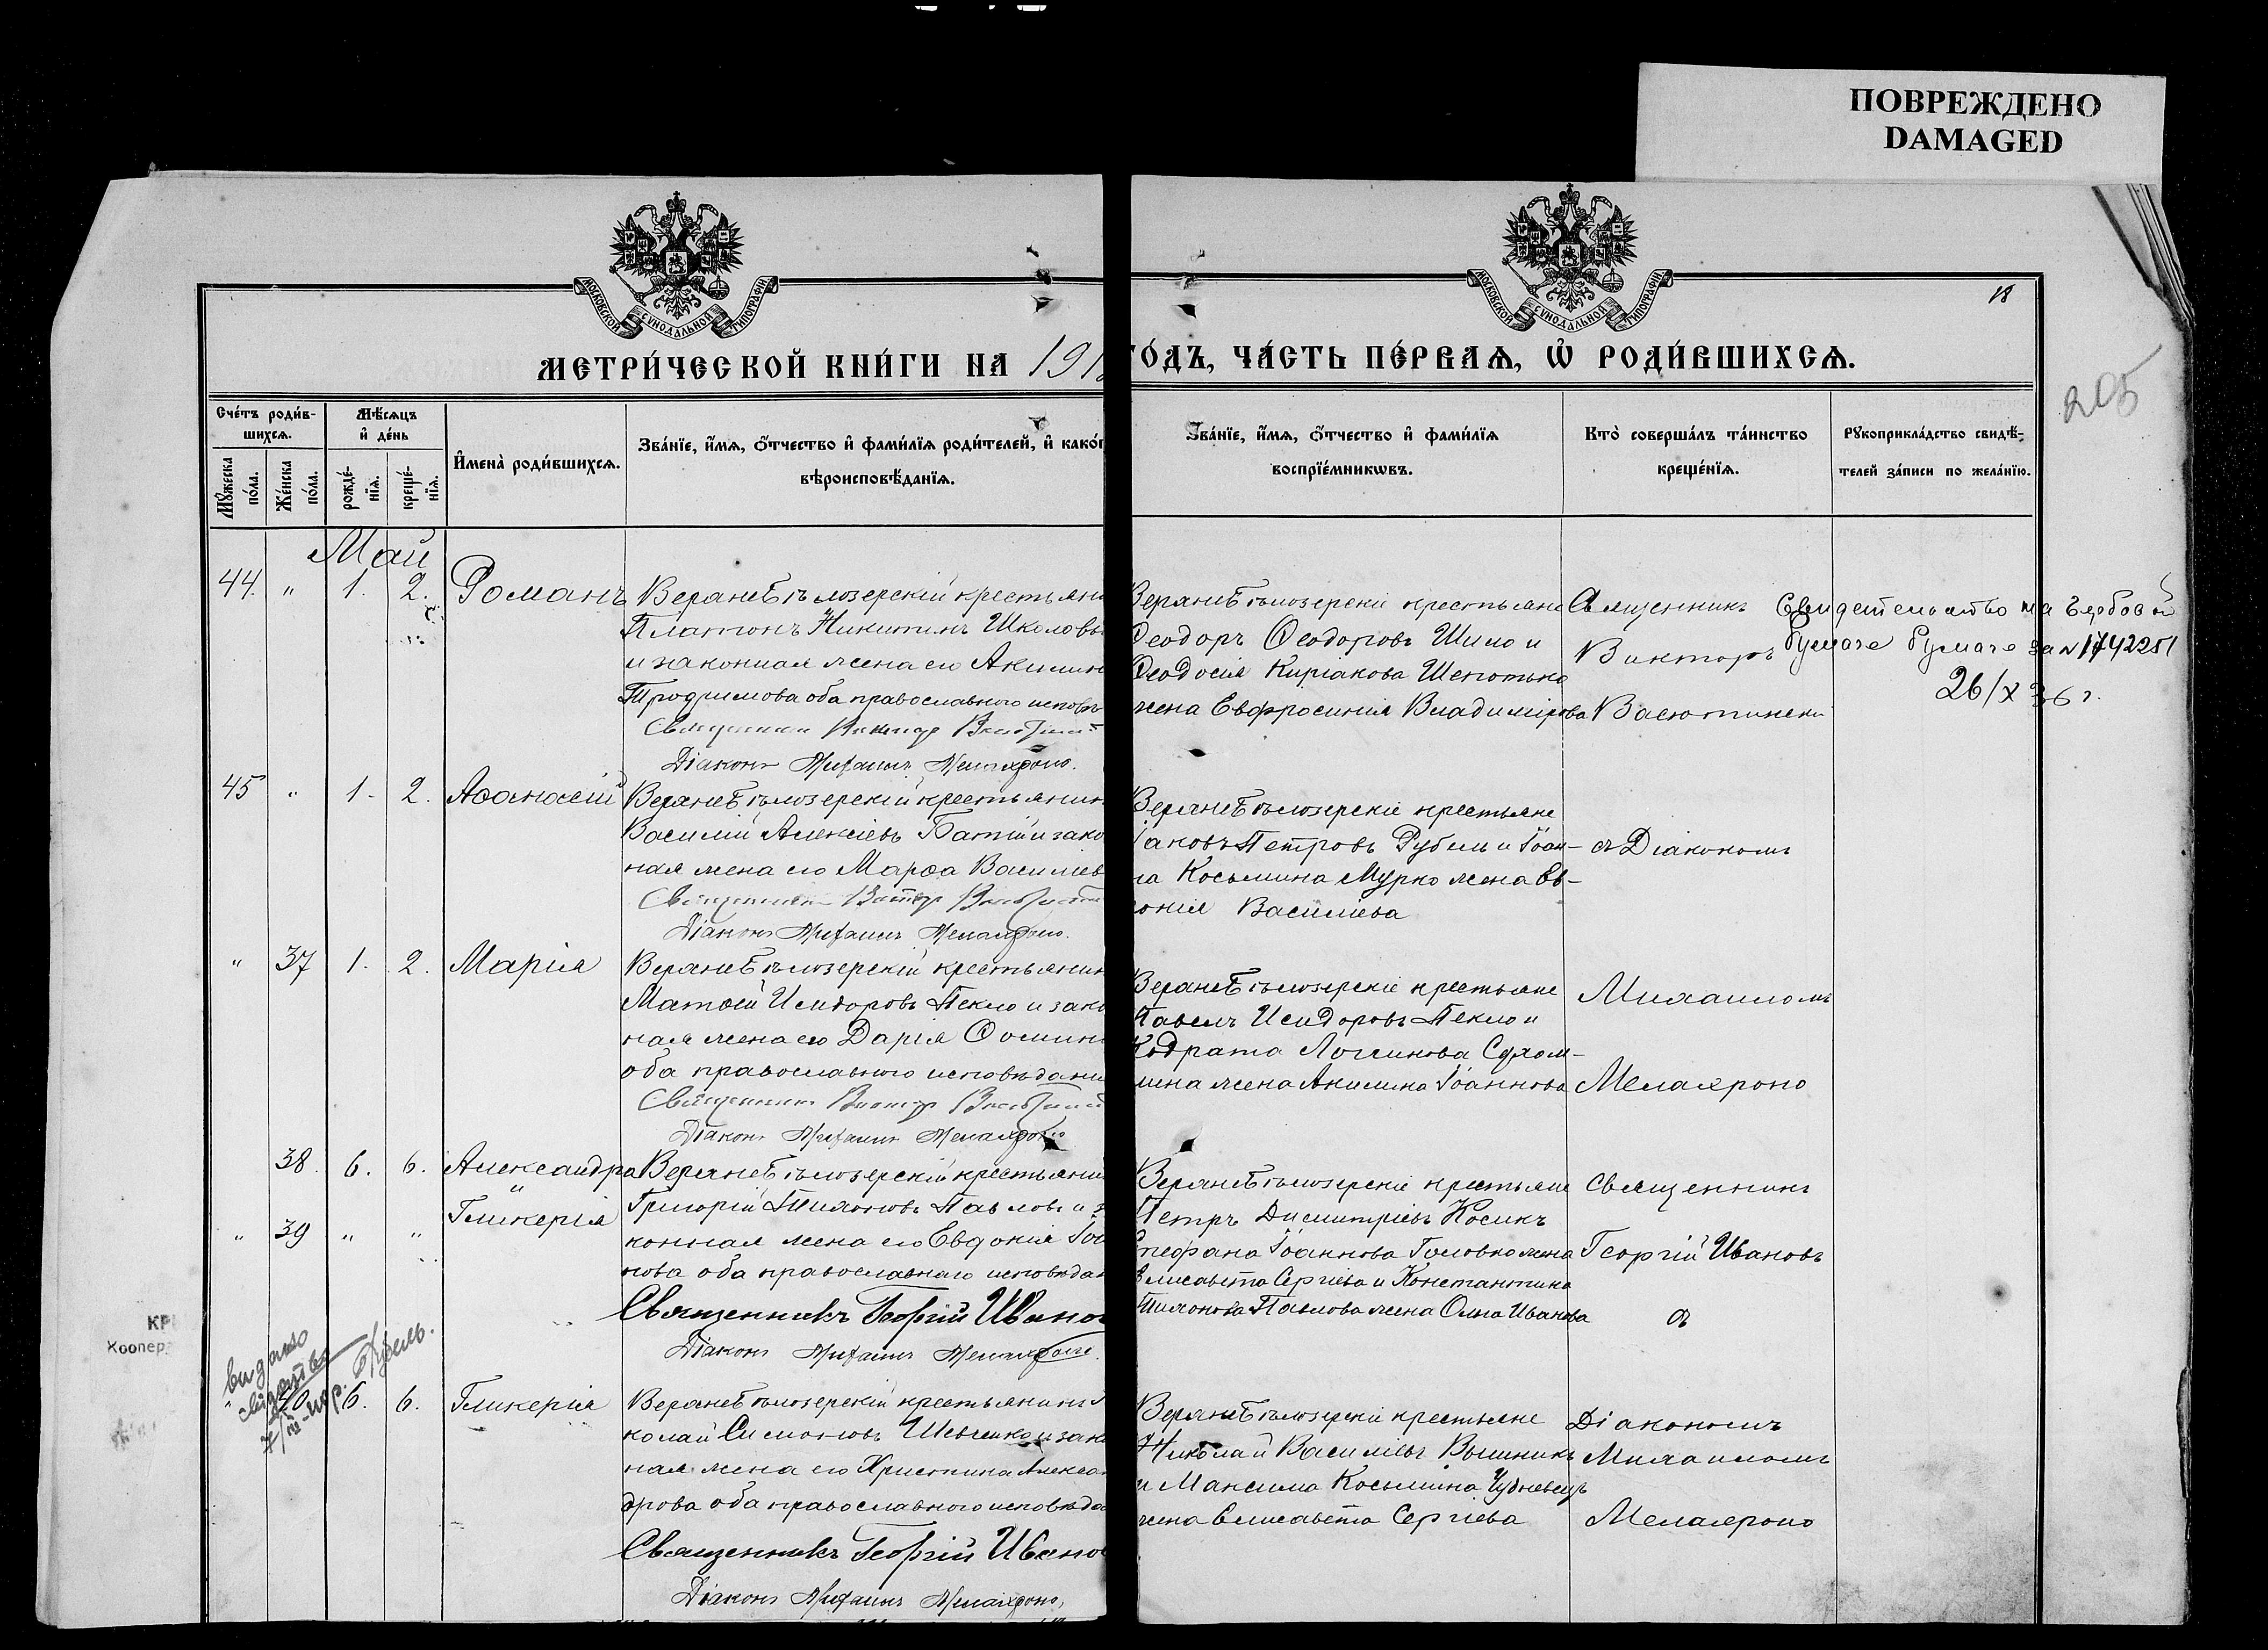 ПОВРЕЖДЕНО
DAMAGED
МОСКОВСКОЙ СѴНОДАЛЬНОЙ ТИПОГРАФІИ
МОСКОВСКОЙ СѴНОДАЛЬНОЙ ТИПОГРАФІИ
18
205
МЕТРИ́ЧЕСКОЙ КНИ́ГИ НА 191
ГО́ДЪ, ЧА́СТЬ ПЕ́РВАѦ, Ѡ҆ РОДИ́ВШИХСѦ.
Сче́тъ роди́в-
шихсѧ.
Мꙋ́жеска по́ла.
Же́нска по́ла.
Мѣ́сѧцъ
и҆ де́нь
рожде́-
нїѧ.
креще́-
нїѧ.
И҆мена̀ роди́вшихсѧ.
Зва́нїе, и҆́мѧ, ѻ҆́тчество и҆ фами́лїѧ роди́телей, и҆ како́г
вѣроисповѣ́данїѧ.
Зва́нїе, и҆́мѧ, ѻ҆́тчество и҆ фами́лїѧ
воспрїе́мникѡвъ.
Кто̀ соверша́лъ та́инство
креще́нїѧ.
Рꙋкоприкла́дство свидѣ́-
телей за́писи по жела́нїю.
Май
44. " 1. 2. Романъ
ВерхнеБѣлозерскій крестьяни
Платонъ Никитинъ Школовы
и законная жена его Акилин
Трофимова оба православнаго исповѣ
Священникъ Викторъ
Діаконъ Михаилъ Мелахроно.
ВерхнеБѣлозерскіе крестьяне
Ѳеодоръ Ѳеодоровъ Шило и
Ѳеодосія Киріакова Шепотько
жена Евфросинія Владимірова
Священникъ
Викторъ
Васютински
Свидетельство на гербовой
бумаге бумаге за № 1742251
26/X 36 г.
45 " 1. 2. Аѳанасій
ВерхнеБѣлозерскій крестьянин
Василій Алексіевъ Батій и зако
ная жена его Марѳа Василіев
Священникъ Викторъ
Діаконъ Михаилъ Мелахроно.
ВерхнеБѣлозерскіе крестьяне
Іаковъ Петровъ Рубель и Іоан-
на Косьмина Мурко жена Ев-
онія Василіева
съ Діакономъ
" 37 1. 2. Марія
ВерхнеБѣлозерскій крестьянин
Матѳій Исидоровъ Пекло и зако
ная жена его Дарія Ѳомин
оба православнаго исповѣдани
Священникъ Викторъ
Діаконъ Михаилъ Мелахроно
ВерхнеБѣлозерскіе крестьяне
Павелъ Исидоровъ Пекло и
Кодрата Логинова Сухом-
лина жена Акилина Іоаннова
Михаиломъ
Мелахроно
38. 6. 6. Александра
ВерхнеБѣлозерскій крестьянин
" 39 " " Гликерія
Григорій Тихоновъ Павловъ и з
конная жена его Евдокія Іоа
нова оба православнаго исповѣдан
Священникъ Георгій Иванов
Діаконъ Михаилъ Мелахроно.
ВерхнеБѣлозерскіе крестьяне
Петръ Димитріевъ Косикъ
Стефана Іоаннова Головко жена
Елисавета Сергіева и Константина
Тихонова Павлова жена Олга Иванова
Священникъ
Георгій Ивановъ
съ
КРЫ
Коопер
видано
свідоцтво
" 40 6. 6. Гликерія
ВерхнеБѣлозерскій крестьянинъ
колай Симоновъ Шевченко и зако
ная жена его Христина Алексан
дрова оба православнаго исповѣда
Священникъ Георгій Иванов
Діаконъ Михаилъ Мелахроно,
ВерхнеБѣлозерскіе крестьяне
Николай Василіевъ Вышникъ
и Максима Косьмина Чубневецъ
жена Елисавета Сергіева
Діакономъ
Михаиломъ
Мелахроно